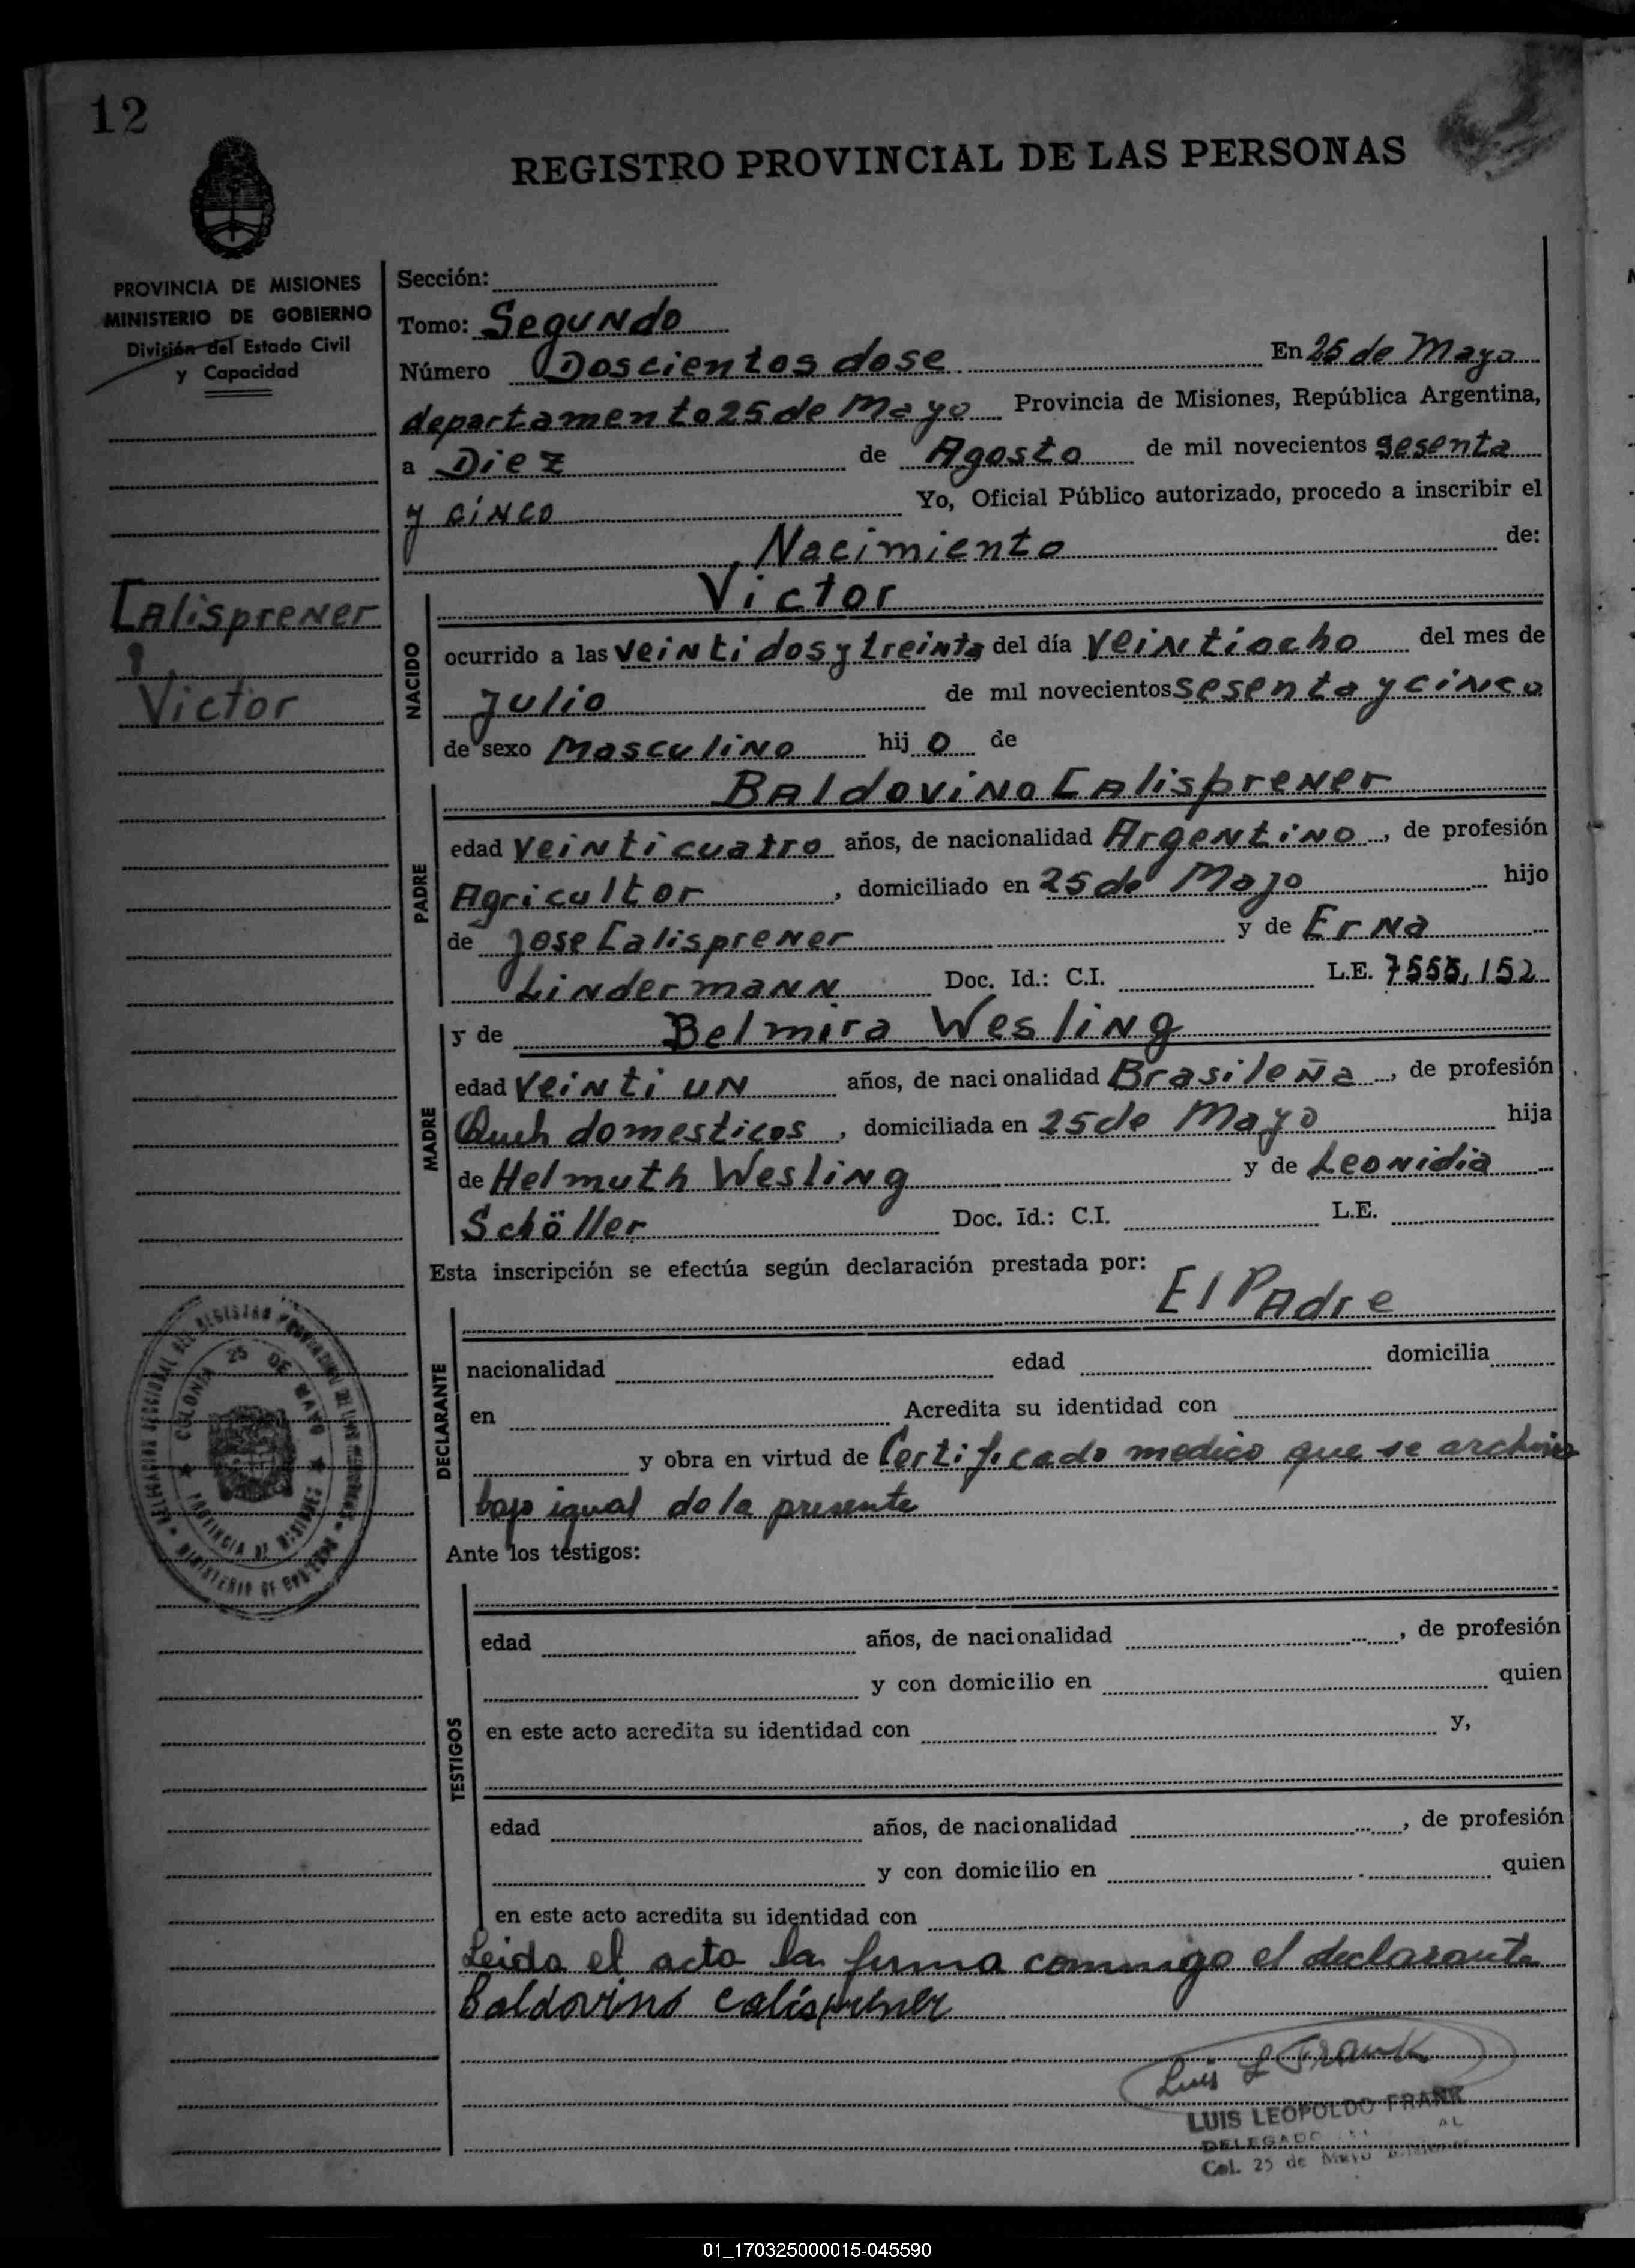 12
REGISTRO PROVINCIAL DE LAS PERSONAS
PROVINCIA DE MISIONES
MINISTERIO DE GOBIERNO
División del Estado Civil
y Capacidad
Calisprener
Victor
Sección:
Tomo: Segundo
Número Doscientos dose En 25 de Mayo
departamento 25 de Mayo Provincia de Misiones, República Argentina,
a Diez de Agosto de mil novecientos sesenta
y cinco Yo, Oficial Público autorizado, procedo a inscribir el
Nacimiento de:
NACIDO
Victor
ocurrido a las veintidos y treinta del día veintiocho del mes de
Julio de mil novecientos sesenta y cinco
de sexo Masculino hij o de
PADRE
Baldovino Calisprener
edad veinticuatro años, de nacionalidad Argentino, de profesión
Agricultor, domiciliado en 25 de Mayo hijo
de Jose Calisprener y de Erna
Lindermann Doc. Id.: C.I. L.E. 7555,152
MADRE
y de Belmira Wesling
edad Veintiun años, de nacionalidad Brasileña, de profesión
domesticos, domiciliada en 25 de Mayo hija
de Helmuth Wesling y de Leonidia
Schöller Doc. Id.: C.I. L.E.
Esta inscripción se efectúa según declaración prestada por:
El Padre
DECLARANTE
nacionalidad edad domicilia
en Acredita su identidad con
y obra en virtud de Certificado medico que se archiva
bajo igual de la presente
Ante los testigos:
TESTIGOS
edad años, de nacionalidad , de profesión
y con domicilio en quien
en este acto acredita su identidad con y,
edad años, de nacionalidad , de profesión
y con domicilio en quien
en este acto acredita su identidad con
Leida el acta la firma conmigo el declarante
Baldovino Calisprener
Luis L Frank
LUIS LEOPOLDO FRANK
DELEGADO
Col. 25 de Mayo Misiones
COLONIA 25 DE MAYO
PROVINCIA DE MISIONES
MINISTERIO DE GOBIERNO
01_170325000015-045590